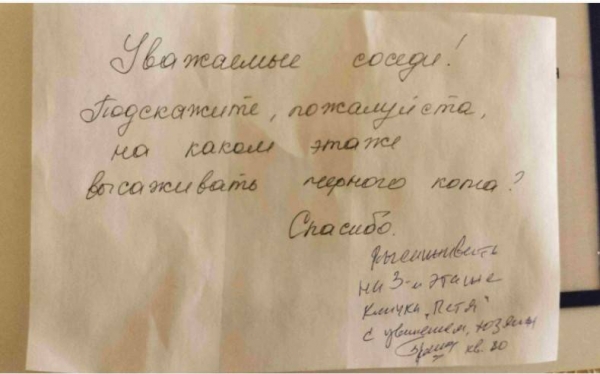 Уважаемые соседи!
Подскажите, пожалуйста,
на каком этаже
высаживать черного кота?
Спасибо.
Высаживать
на 3-м этаже
Кличка „Петя"
с уважением, хозяин
кв. 20